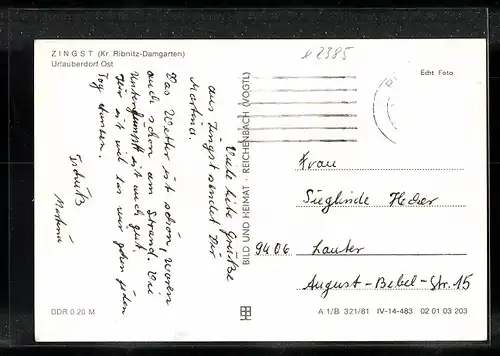 ZINGST (Kr. Ribnitz-Damgarten)
Urlauberdorf Ost
e 2385
Echt Foto
Viele liebe Grüße
aus Zingst sendet Dir
Martina.
Das Wetter ist schön, waren
auch schon am Strand. Die
Unterkunft ist auch gut.
Hier ist viel los wir gehen jeden
Tag tanzen.
Tschüß
Martina
BILD UND HEIMAT · REICHENBACH (VOGTL)
Frau
Sieglinde
9406 Lauter
August-Bebel-Str. 15
DDR 0.20 M
A 1/B 321/81 IV-14-483 02 01 03 203